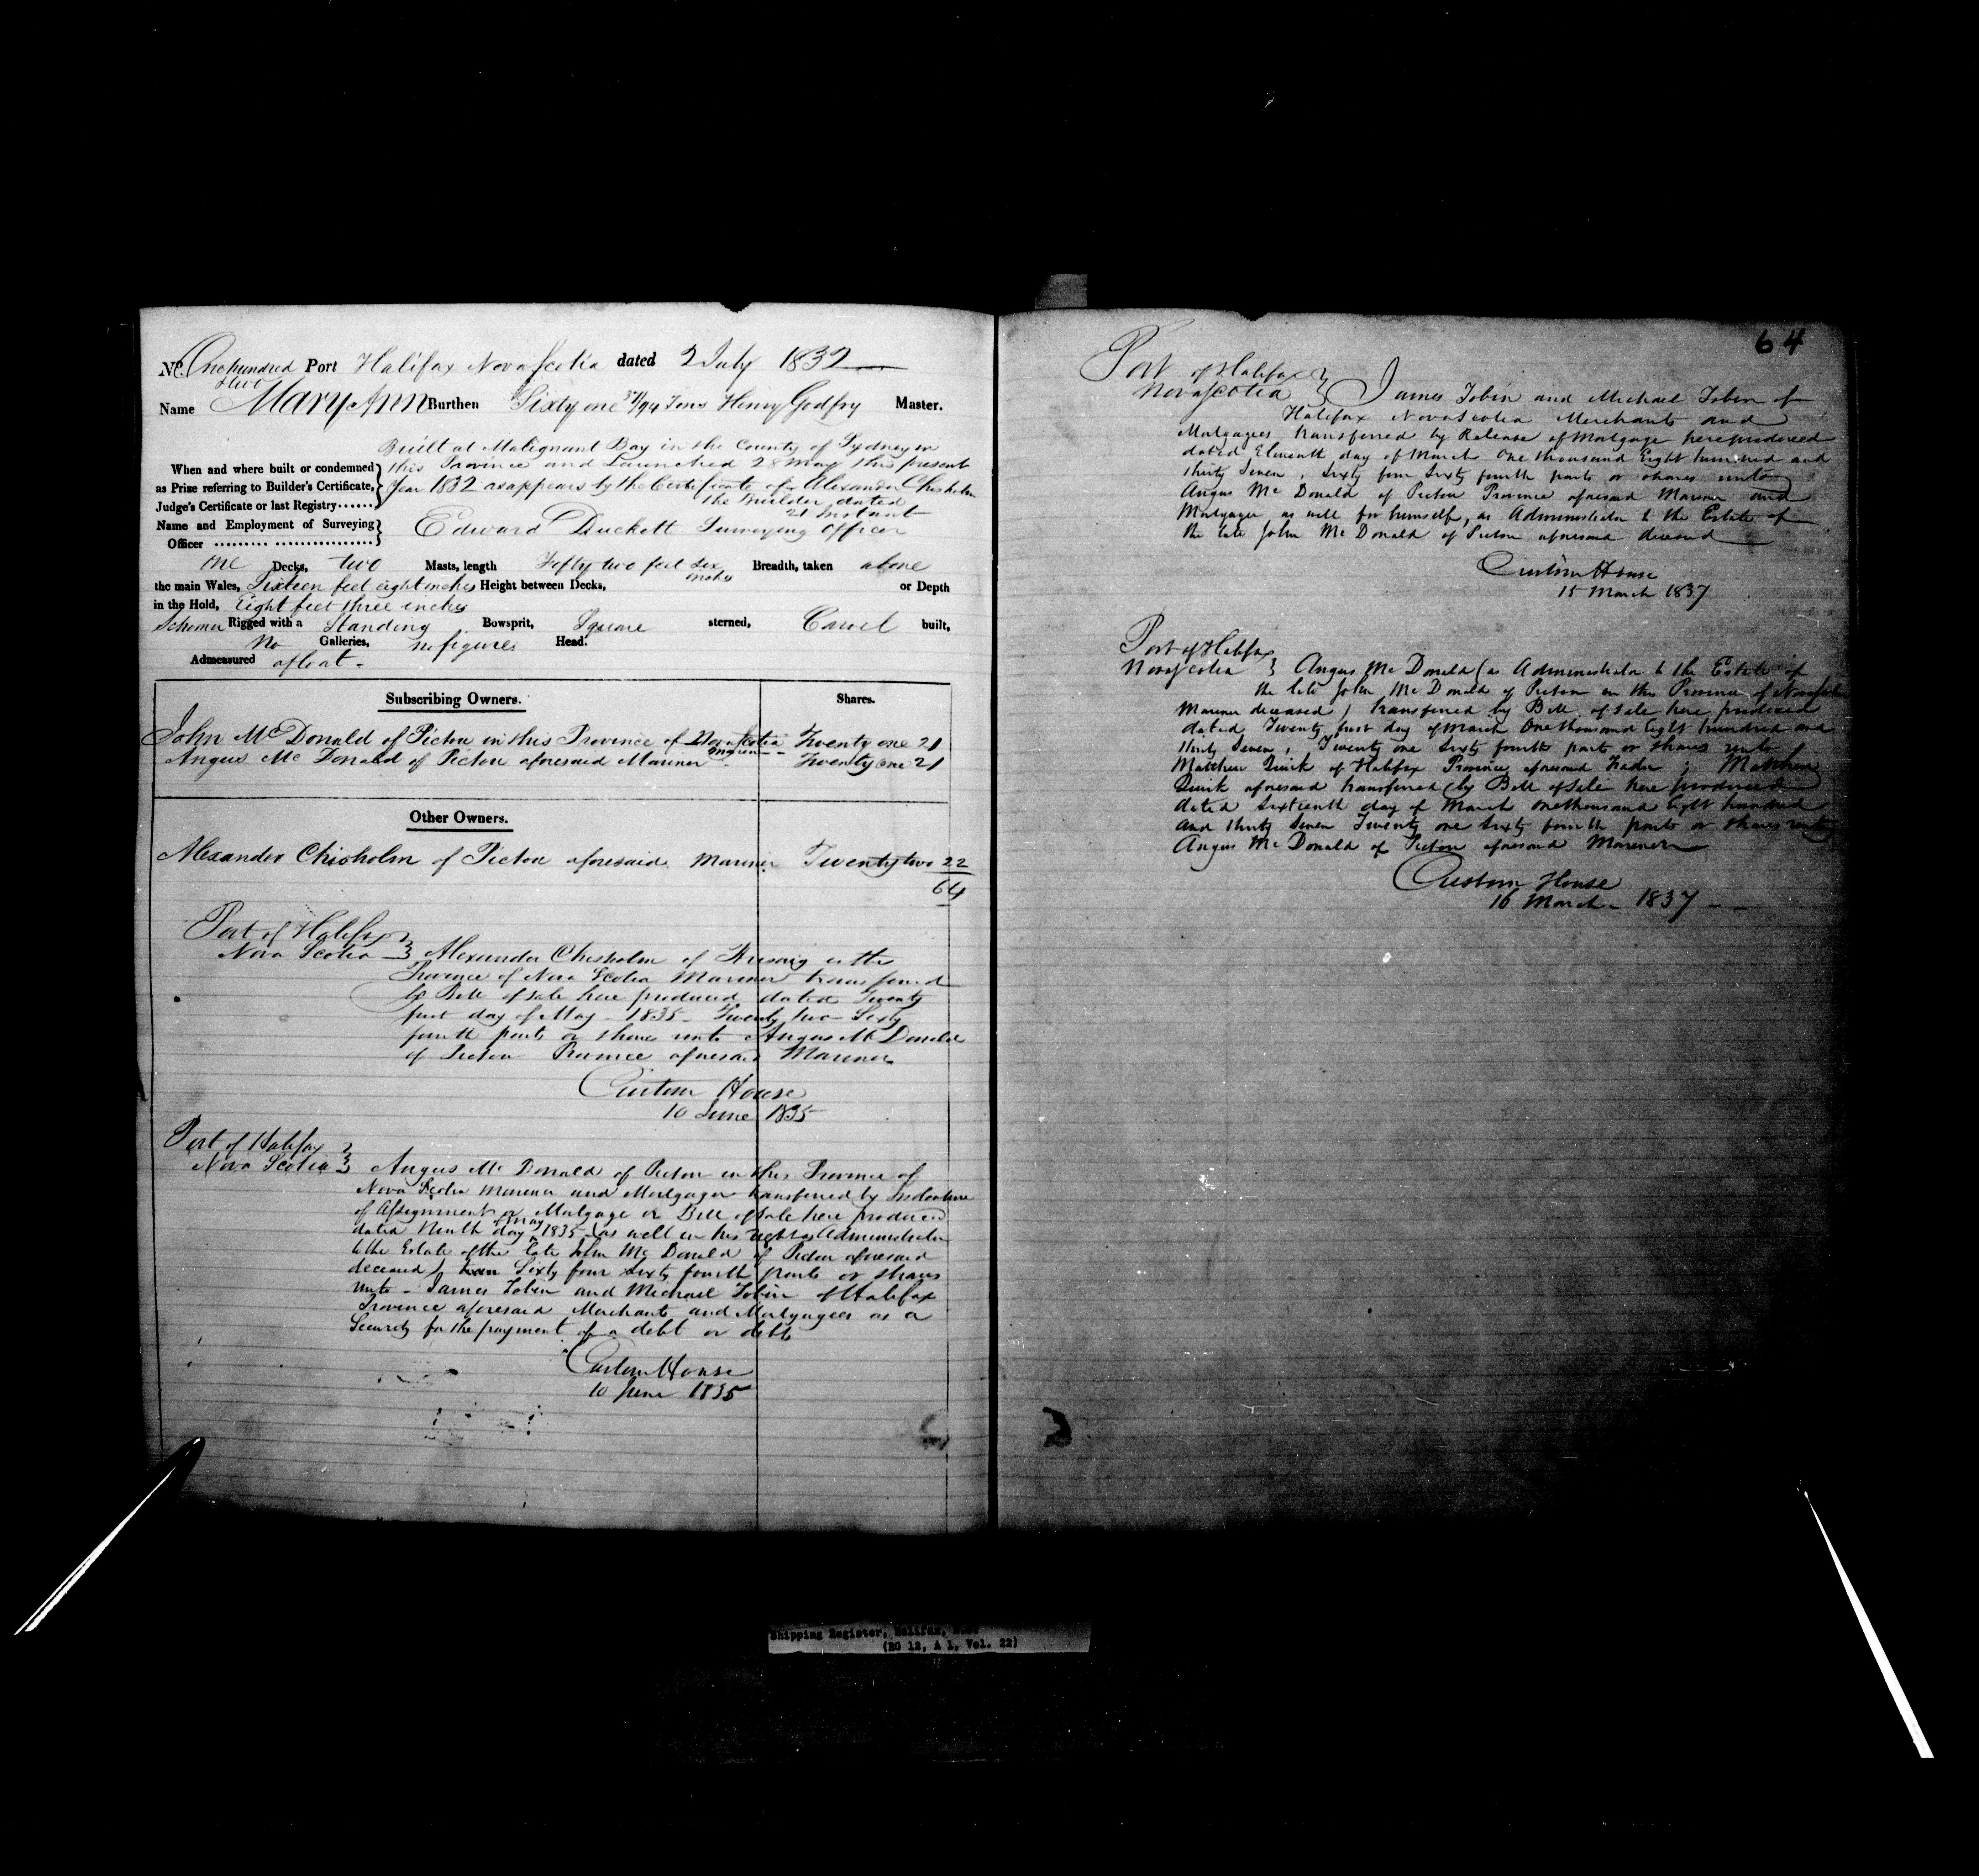 No. One hundred & two Port Halifax Nova Scotia dated 2 July 1832
Name Mary Ann Burthen Sixty one 37/94 Tons Henry Godfry Master.
Built at Malignant Bay in the County of Sydney in
When and where built or condemned this Province and Launched 28 May this present
as Prize referring to Builder's Certificate, Year 1832 as appears by the Certificate of Alexander Chisholm
Judge's Certificate or last Registry...... the Builder dated
21 Instant
Name and Employment of Surveying Edward Duckett Surveying Officer
Officer
One Decks, two Masts, length Fifty two feet six inches Breadth, taken above
the main Wales, Sixteen feet eight inches Height between Decks, or Depth
in the Hold, Eight feet three inches
Schooner Rigged with a Standing Bowsprit, Square sterned, Carvel built,
No Galleries, no figures Head.
Admeasured afloat -
Subscribing Owners. Shares.
John McDonald of Pictou in this Province of Nova Scotia Mariner - Twenty one 21
Angus McDonald of Pictou aforesaid Mariner - Twenty one 21
Other Owners.
Alexander Chisholm of Pictou aforesaid Mariner Twenty two 22
64
Port of Halifax
Nova Scotia } Alexander Chisholm of Arisaig in the
Province of Nova Scotia Mariner transferred
by Bill of Sale here produced dated Twenty
first day of May - 1835 - Twenty two Sixty
fourth parts or shares unto Angus McDonald
of Pictou Province aforesaid Mariner
Custom House
10 June 1835
Port of Halifax
Nova Scotia } Angus McDonald of Pictou in this Province of
Nova Scotia Mariner and Mortgager transferred by Indenture
of Assignment or Mortgage or Bill of Sale here produced
dated Ninth day of May 1835 (as well in his right as Administrator
to the Estate of the late John McDonald of Pictou aforesaid
deceased) Sixty four Sixty fourth parts or shares
unto - James Tobin and Michael Tobin of Halifax
Province aforesaid Merchants and Mortgagees as a
Security for the payment of a debt or debts
Custom House
10 June 1835
64
Port of Halifax
Nova Scotia } James Tobin and Michael Tobin of
Halifax Nova Scotia Merchants and
Mortgagees transferred by Release of Mortgage here produced
dated Eleventh day of March One thousand Eight hundred and
thirty Seven, Sixty four Sixty fourth parts or shares unto
Angus McDonald of Pictou Province aforesaid Mariner and
Mortgager as well for himself, as Administrator to the Estate of
the late John McDonald of Pictou aforesaid deceased
Custom House
15 March 1837
Port of Halifax
Nova Scotia } Angus McDonald (as Administrator to the Estate of
the late John McDonald of Pictou in this Province of Nova Scotia
Mariner deceased) transferred by Bill of Sale here produced
dated Twenty first day of March One thousand Eight hundred and
thirty Seven, Twenty one Sixty fourth parts or shares unto
Matthew Quirk of Halifax Province aforesaid Trader; Matthew
Quirk aforesaid transferred by Bill of Sale here produced
dated Sixteenth day of March One thousand Eight hundred
and thirty Seven Twenty one Sixty fourth parts or shares unto
Angus McDonald of Pictou aforesaid Mariner
Custom House
16 March - 1837
Shipping Register, Halifax,
(RG 12, A 1, Vol. 22)